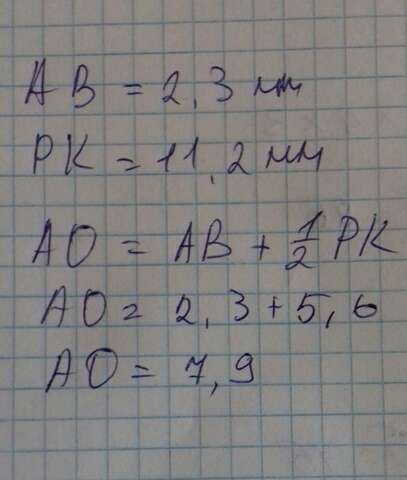 AB = 2,3 мм
PK = 11,2 мм
AO = AB + 1/2 PK
AO = 2,3 + 5,6
AO = 7,9